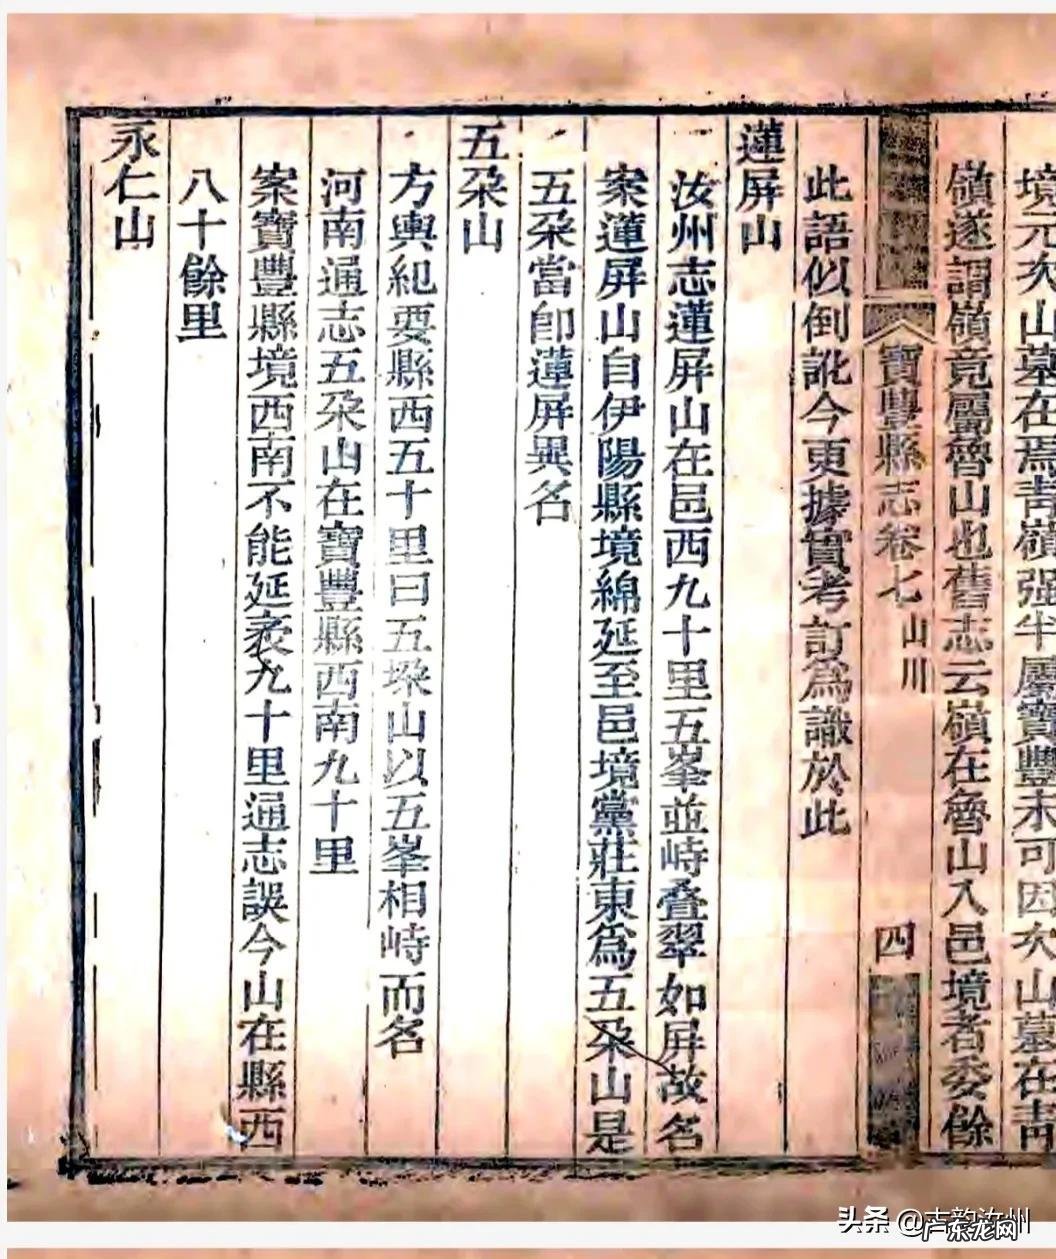 境元次山墓在焉青嶺强半屬寶豐未可因次山墓在青
嶺遂謂嶺竟屬魯山也舊志云嶺在魯山入邑境者委餘
寶豐縣志卷七 山川 四
此語似倒訛今更據實考訂爲識於此
蓮屏山
汝州志蓮屏山在邑西九十里五峯並峙叠翠如屏故名
案蓮屏山自伊陽縣境綿延至邑境黨莊東爲五朶山是
五朶當卽蓮屏異名
五朶山
方輿紀要縣西五十里曰五垜山以五峯相峙而名
河南通志五朶山在寶豐縣西南九十里
案寶豐縣境西南不能延袤九十里通志誤今山在縣西
八十餘里
永仁山
头条 @古韵汝州
广东龙网